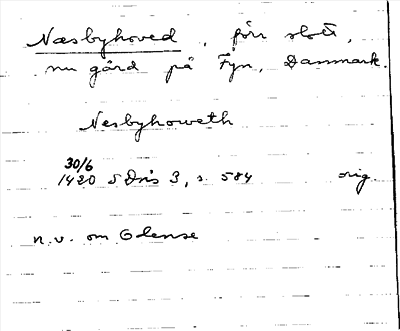 Næsbyhoved, förr slott,
nu gård på Fyn, Danmark.
Nesbyhoweth
30/6
1420 SDns 3, s. 584 orig.
n.v. om Odense